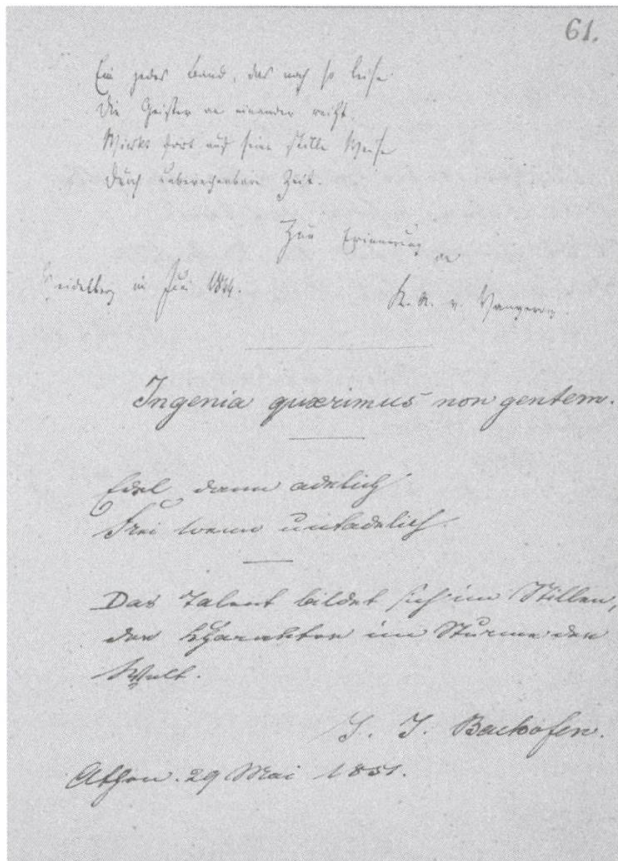 61.
Ein jedes Band, das noch so leise
Die Geister an einander reiht
Wirkt fort auf seine stille Weise
Durch unberechenbare Zeit.
Zur Erinnerung
an
Heidelberg im Juni 1844.
K. A. v. Vangerow
Ingenia quærimus non gentem.
Edel dann adelich
Frei wenn untadelich
Das Talent bildet sich im Stillen,
der Charakter im Sturme der
Welt.
J. J. Bachofen.
Athen. 29 Mai 1851.